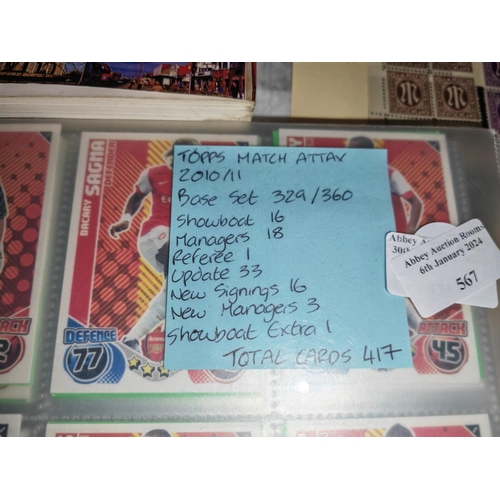 TOPPS MATCH ATTAX
2010/11
BASE SET 329/360
SHOWBOAT 16
MANAGERS 18
REFEREE 1
UPDATE 33
NEW SIGNINGS 16
NEW MANAGERS 3
SHOWBOAT EXTRA 1
TOTAL CARDS 417
BACARY SAGNA
DEFENDER
DEFENCE
77
ATTACK
45
2
Abbey A
30th
Abbey Auction Rooms
6th January 2024
567